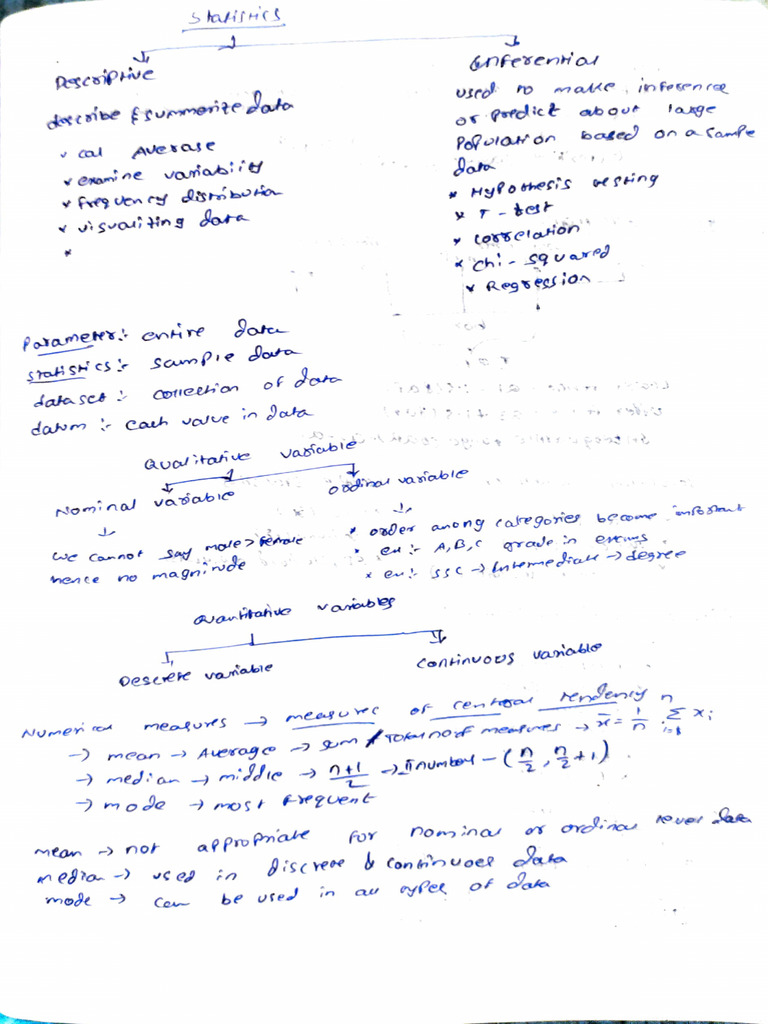 Statistics
Descriptive
describe & summerize data
cal Average
examine variability
frequency distribution
visualiting data
Inferential
used to make inference
or predict about large
population based on a sample
data
* Hypothesis testing
* T-test
* correlation
* chi-squared
* Regression
Parameter:- entire data
statistics:- sample data
dataset:- collection of data
datum:- each value in data
Qualitative variable
Nominal variable
↓
we cannot say male > female
hence no magnitude
ordinal variable
↓
* order among categories become important
* ex:- A,B,C grade in exams
* ex:- SSC → Intermediate → degree
Quantitative variables
Descrete variable
Continuous variable
Numerical measures → measures of central tendency
→ mean → Average → sum / Total no of measures → x̄ = 1/n Σ xi
→ median → middle → n+1/2 → number - (n/2, n/2 +1)
→ mode → most frequent
mean → not appropriate for nominal or ordinal level data
median → used in discrete & continuoes data
mode → can be used in all types of data